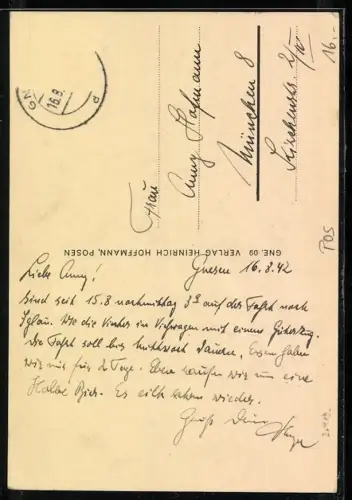 Frau
Anny Hofmann
München 8
Kirchenstr. 2/IV
16.-
POS
16.8.
GNE. 09 VERLAG HEINRICH HOFFMANN, POSEN
Liebe Anny! Gnesen 16.8.42
Sind seit 15.8 nachmittag 3h auf der Fahrt nach
Iglau. Wie die Rinder in Viehwagen mit einem Güterzug.
Die Fahrt soll bis Mittwoch dauern, Essen haben
wir nur für 2 Tage. Eben kaufen wir uns eine
Halbe Bier. Es eilt schon wieder.
Gruß Dein